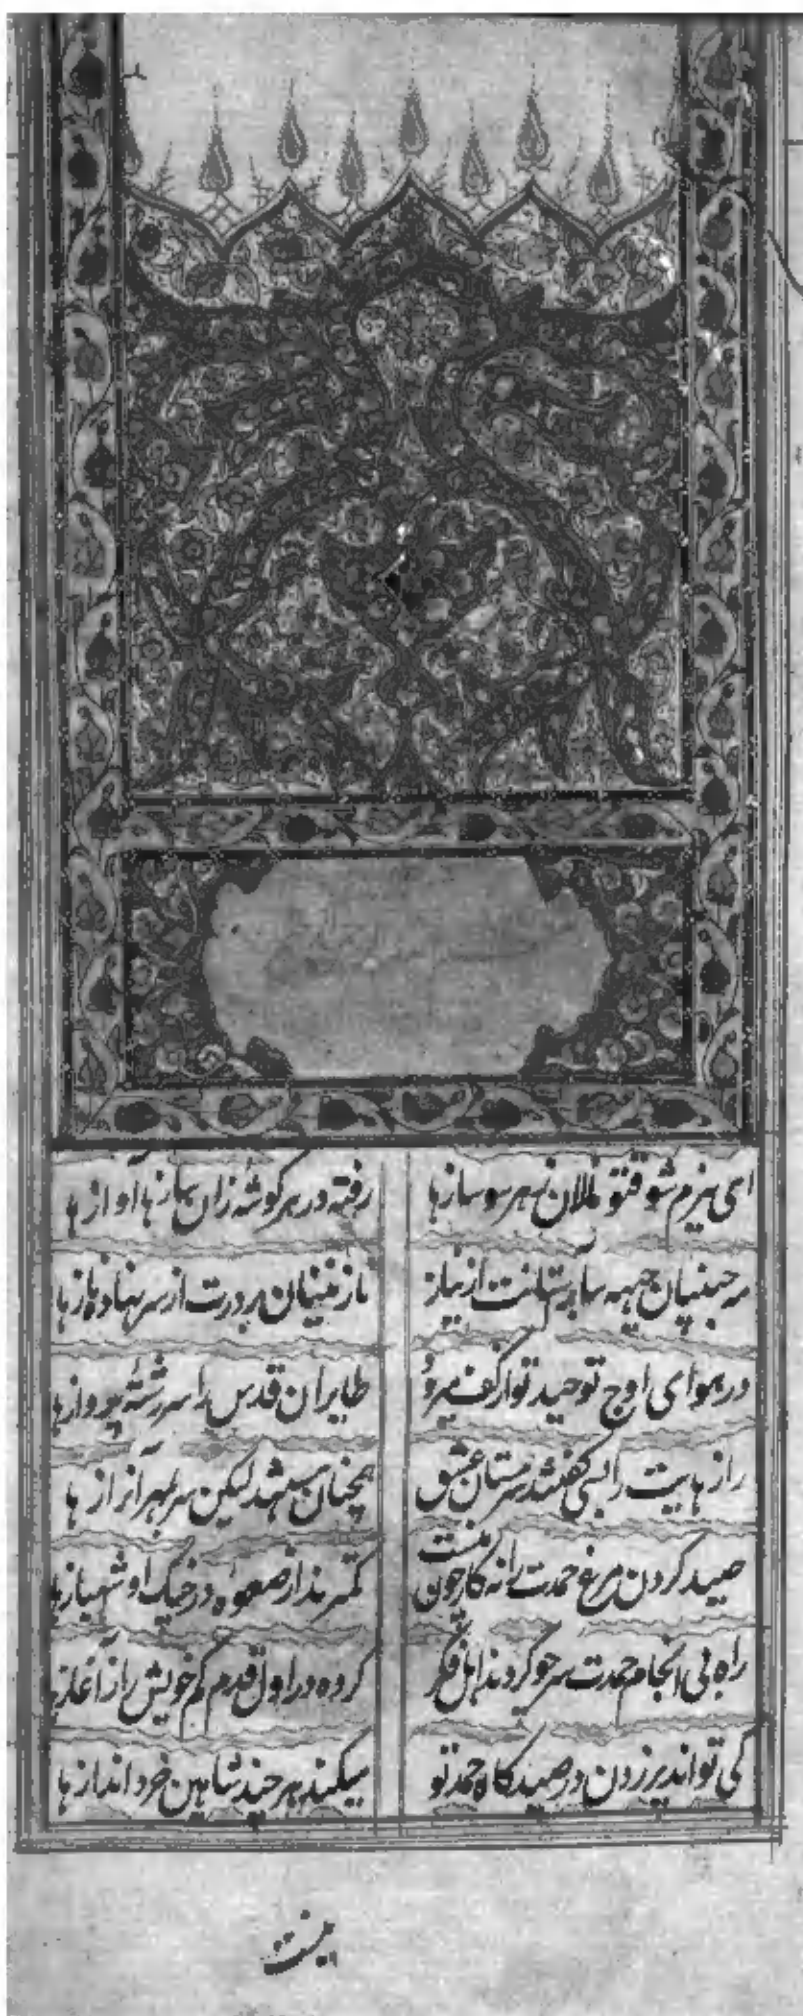 ای بزم شوق تو نالان ز هر سو سازها رفته در هر گوشه زان سازها آوازها
مه جبینان جبهه سا بر آستانت از نیاز نازنینان بر درت از سر نهاده نازها
در هوای اوج توحید تو از کف میرود طایران قدس را سررشته پروازها
رازهایت را بسی گفتند سرمستان عشق همچنان سربمهر آن رازها
صید کردن مرغ حمدت را نه کار چون منست کمترند از صعوه در چنگ او شهبازها
راه بی انجام حمدت سر چو کردند اهل فکر کرده در اول قدم گم خویش را ز آغازها
کی تواند پر زدن در صیدگاه حمد تو میکند هر چند شاهین خرد اندازها